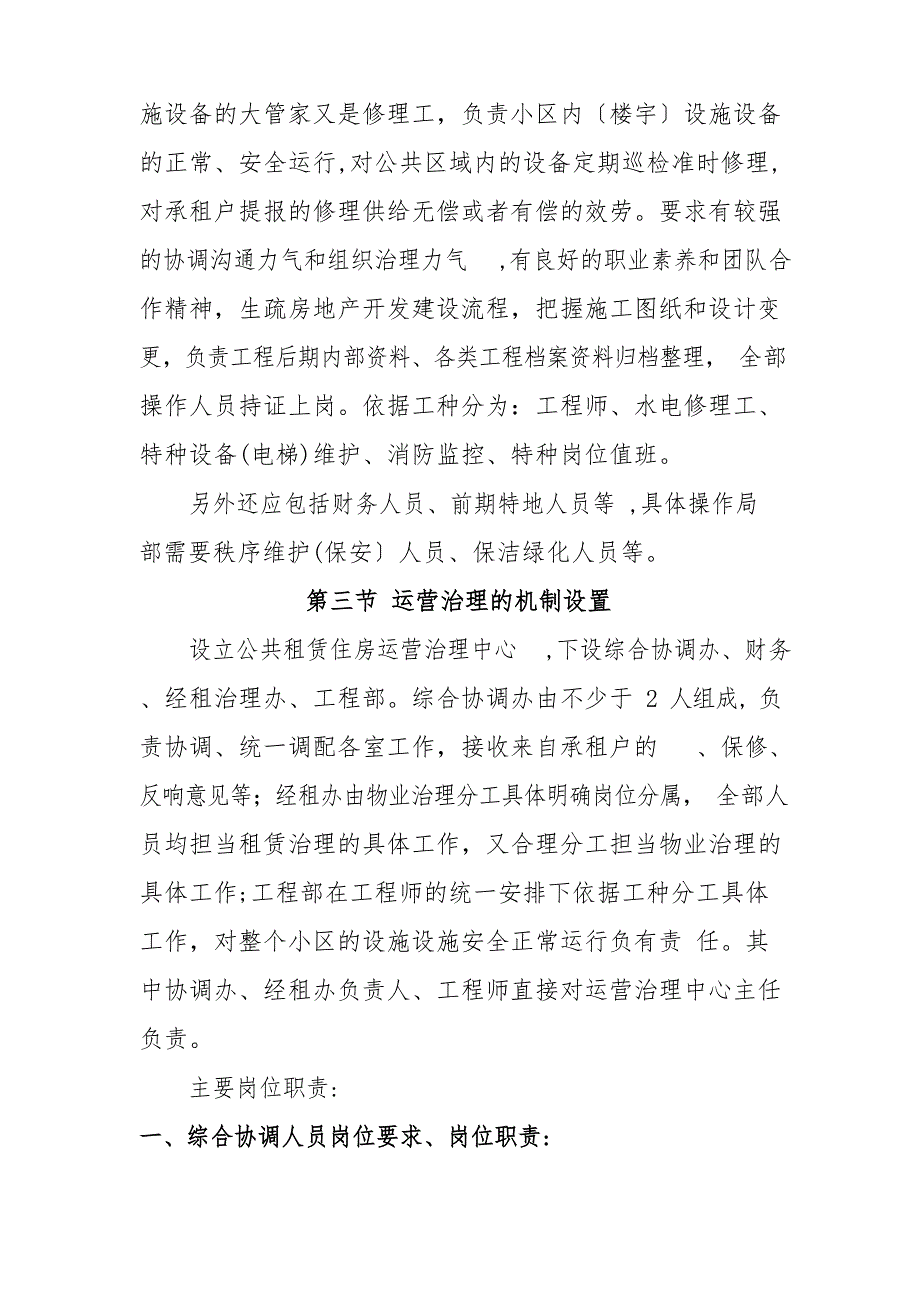 施设备的大管家又是修理工，负责小区内〔楼宇〕设施设备
的正常、安全运行,对公共区域内的设备定期巡检准时修理,
对承租户提报的修理供给无偿或者有偿的效劳。要求有较强
的协调沟通力气和组织治理力气 ,有良好的职业素养和团队合
作精神，生疏房地产开发建设流程，把握施工图纸和设计变
更，负责工程后期内部资料、各类工程档案资料归档整理， 全部
操作人员持证上岗。依据工种分为：工程师、水电修理工、
特种设备(电梯)维护、消防监控、特种岗位值班。
另外还应包括财务人员、前期特地人员等 ,具体操作局
部需要秩序维护(保安〕人员、保洁绿化人员等。
第三节 运营治理的机制设置
设立公共租赁住房运营治理中心 ,下设综合协调办、财务
、经租治理办、工程部。综合协调办由不少于 2 人组成, 负
责协调、统一调配各室工作，接收来自承租户的 、保修、
反响意见等；经租办由物业治理分工具体明确岗位分属， 全部人
员均担当租赁治理的具体工作，又合理分工担当物业治理的
具体工作;工程部在工程师的统一安排下依据工种分工具体
工作，对整个小区的设施设施安全正常运行负有责 任。其
中协调办、经租办负责人、工程师直接对运营治理中心主任
负责。
主要岗位职责:
一、综合协调人员岗位要求、岗位职责：